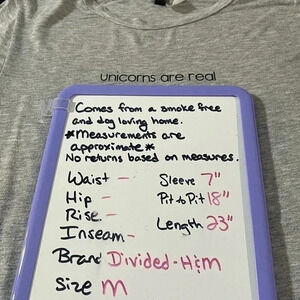 unicorns are real
Comes from a smoke free
and dog loving home.
*Measurements are
approximate*
No returns based on measures.
Waist - Sleeve 7"
Hip - Pit to Pit 18"
Rise - Length 23"
Inseam -
Brand Divided - H&M
Size M